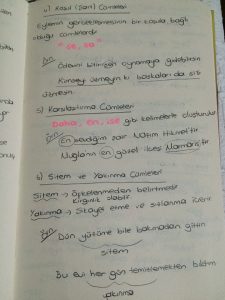 4) Koşul (Şart) Cümleleri
Eylemin gerçekleşmesinin bir koşula bağlı
olduğu cümlelerdir.
"se, sa"
Ödevini bitirirsen oynamaya gidebilirsin.
5) Karşılaştırma Cümleleri
Daha, en, ise gibi kelimelerle oluşturulur.
En sevdiğim şair Nazım Hikmet'tir
Muğlanın en güzel ilçesi Marmaris'tir
6) Sitem ve Yakınma Cümleleri
Sitem → öfkelenmeden belirtmedir
Kırgınlık olabilir.
Yakınma → Şikayet etme ve sızlanma içerir
Dün yüzüme bile bakmadan gittin
sitem
Bu evi her gün temizlemekten bıktım
yakınma